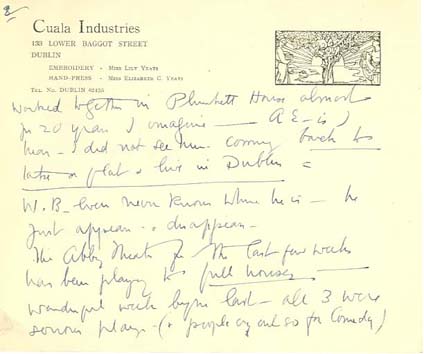 2
Cuala Industries
133 LOWER BAGGOT STREET
DUBLIN
EMBROIDERY - MISS LILY YEATS
HAND-PRESS - MISS ELIZABETH C. YEATS
TEL No. DUBLIN 62425
worked together in Plunkett House almost
for 20 years I imagine — A E - is I
hear - I did not see him. coming back to
take a flat & live in Dublin =
W.B. even never know where he is - he
just appears & disappears -
The Abbey Theatre for the last few weeks
has been playing to full houses
wonderful week before last - all 3 were
serious plays - (& people cry out so for Comedy)